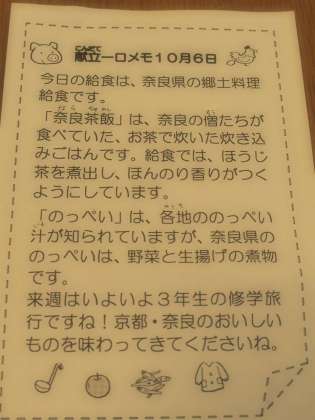 献立一口メモ10月6日
今日の給食は、奈良県の郷土料理
給食です。
「奈良茶飯」は、奈良の僧たちが
食べていた、お茶で炊いた炊き込
みごはんです。給食では、ほうじ
茶を煮出し、ほんのり香りがつく
ようにしています。
「のっぺい」は、各地ののっぺい
汁が知られていますが、奈良県の
のっぺいは、野菜と生揚げの煮物
です。
来週はいよいよ3年生の修学旅
行ですね!京都・奈良のおいしい
ものを味わってきてくださいね。